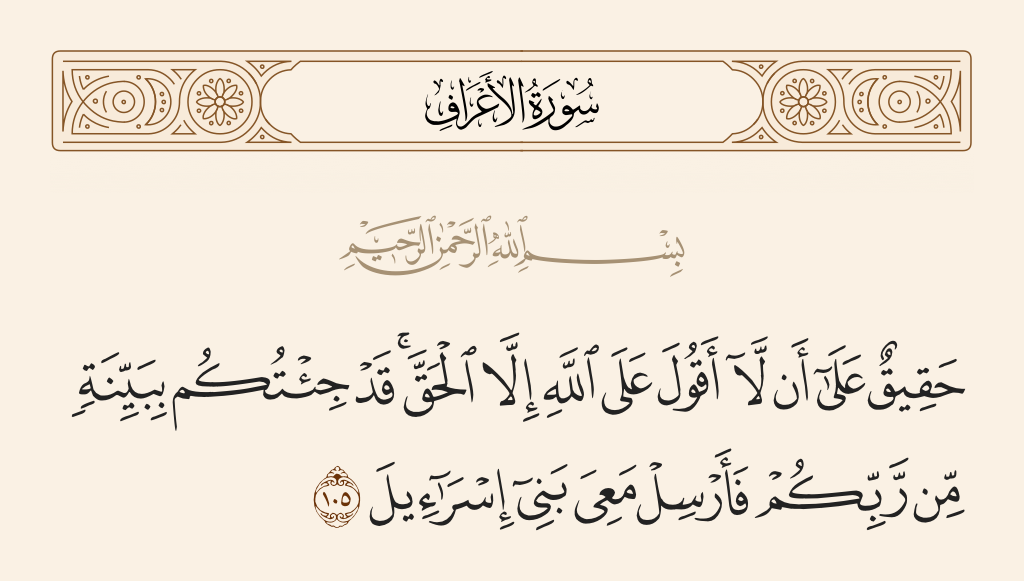 سُورَةُ الأَعْرَافِ
بِسْمِ ٱللَّهِ ٱلرَّحْمَٰنِ ٱلرَّحِيمِ
حَقِيقٌ عَلَىٰٓ أَن لَّآ أَقُولَ عَلَى ٱللَّهِ إِلَّا ٱلْحَقَّ ۚ قَدْ جِئْتُكُم بِبَيِّنَةٍ
مِّن رَّبِّكُمْ فَأَرْسِلْ مَعِىَ بَنِىٓ إِسْرَٰٓءِيلَ ١٠٥